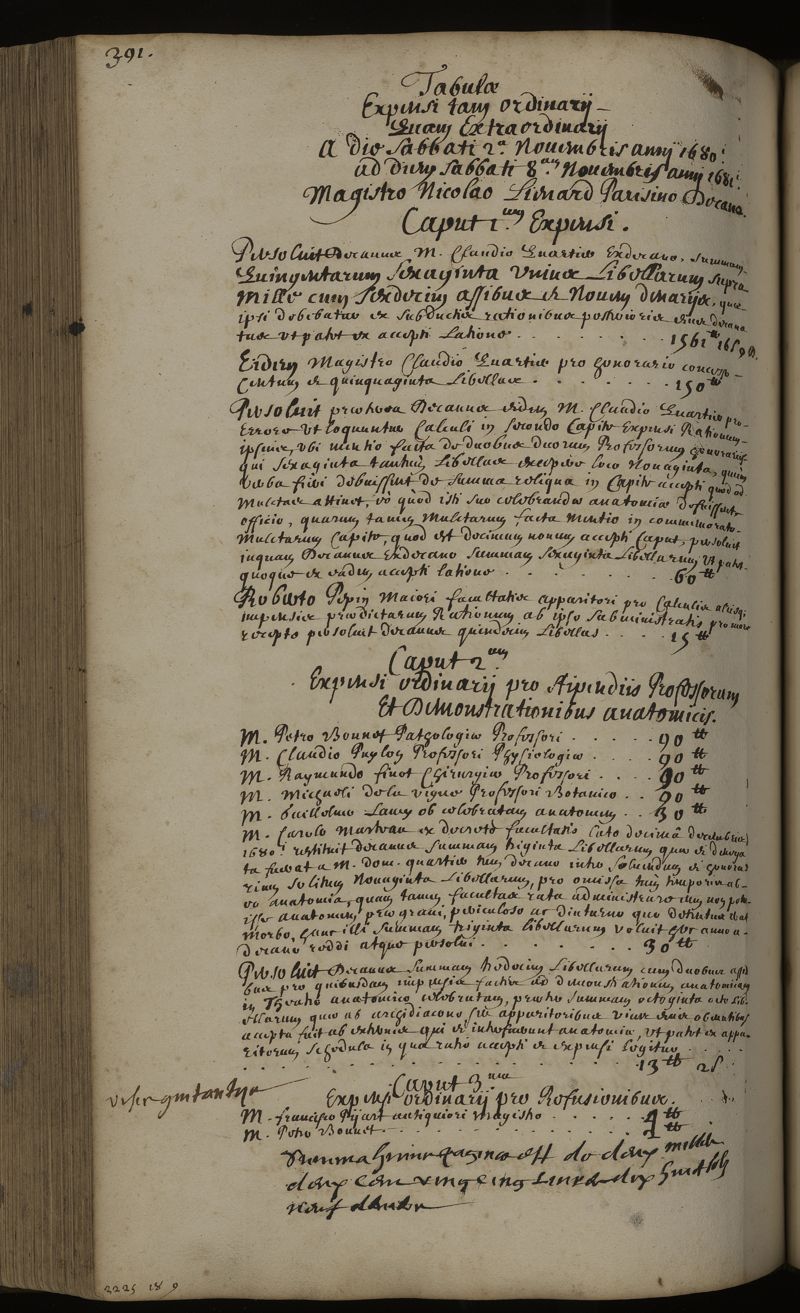 391.
Tabulæ
Expensi tam ordinarij
Quam Extraordinarij
A die Sabbati 2.ª Nouembris anni 1680.
ad diem Sabbati 8.am Nouembris anni 1681.
Magistro Nicolao Lienard Parisino Decano.
Caput 1.um Expensi.
Persoluit Decanus M. Claudio Quartier Exdecano, summam
Quingentarum sexaginta Unius Libellarum supra
Mille cum sexdecim assibus et Nouem denarijs, quæ
ipsi debebatur ex subductis rationibus posterioris decana
tus vt patet ex accepti Latione . . . . . . . 1561 tt 16 s 9 d.
Eidem Magistro Claudio Quartier pro honorario concesso
Centum et quinquaginta Libellas . . . . . . 150 tt
Persoluit præterea Decanus eidem M. Claudio Quartier pro
Errore Vt loquuntur Calculi in secundo Capite Expensi Rationum
ipsius, vbi mentio facta de duobus duorum Professorum honorarijs
qui sexaginta tantum Libellas loco Nonaginta, quum
verba fieri debuissent de summa reliqua in Capite accepti quod ad
Mulctas attinet, eò quòd isti suo celebrandæ anatomiæ defuissent
officio, quarum tamen Mulctarum facta mentio in commemorato
Mulctarum Capite, quod est decimum nonum accepti Caput, persoluit
inquam Decanus Exdecano summam sexaginta Libellarum Vt patet
quoque ex eadem accepti latione . . . . . . . 60 tt
Roberto Pepin Maiori facultatis apparitori pro Calculis alijsque
impensis prædictarum Rationum ab ipso subministratis pro more
recepto persoluit decanus quindecim Libellas . . . . 15 tt
Caput 2.um
Expensi ordinarij pro stipendiis Professorum
Et Demonstrationibus anatomicis.
M. Petro Bonnet Pathologiæ Professori . . . . . 90 tt
M. Claudio Puylon Professori Physiologiæ . . . . 90 tt
M. Raymundo finot Chirurgiæ Professori . . . . 90 tt
M. Michaeli de la vigne Professori Botanico . . 90 tt
M. Guillelmo Lamy ob celebratam anatomen . . 30 tt
M. Carolo Marteau ex decreto facultatis Lato decimâ decembris
1680. restituit decanus summam triginta Libellarum quæ
ta fuerat a M. Dom. quartier tum decano inter soluendum ei honora
rium solitum Nonaginta Libellarum, pro omissa tum temporis ab
eo anatomia, quam tamen facultas rata administrare eum non potu
isse anatomen præ graui, periculoso ac diuturno quo detentus erat
morbo, hanc illi summam triginta libellarum voluit hoc anno a
decano reddi atque persolui . . . . . . . 30 tt
Persoluit Decanus summam tredecim Libellarum cum duobus assi
bus pro quibusdam impensis factis ad demonstrationem anatomicam
in Theatro anatomico celebratam, præter summam octoginta octo Lib
ellarum quæ ab archidiacono, siue apparitoribus
accepta fuit ab extraneis qui interfuerunt anatomiæ, vt patet ex appa
ritorum schedula in qua ratio accepti et expensi legitur . . .
. . . . . . . . . . . . 13 tt 2 s
Caput 3.um
Expensi ordinarij pro Professionibus.
M. francisco Pijart antiquiori magistro . . . . . . 1 tt
M. Petro Bonnet . . . . . . . . . . .
Summa huius paginæ est de deux mille
deux cent vingt cinq Liures dix huit sols
neuf deniers
2225 18 9